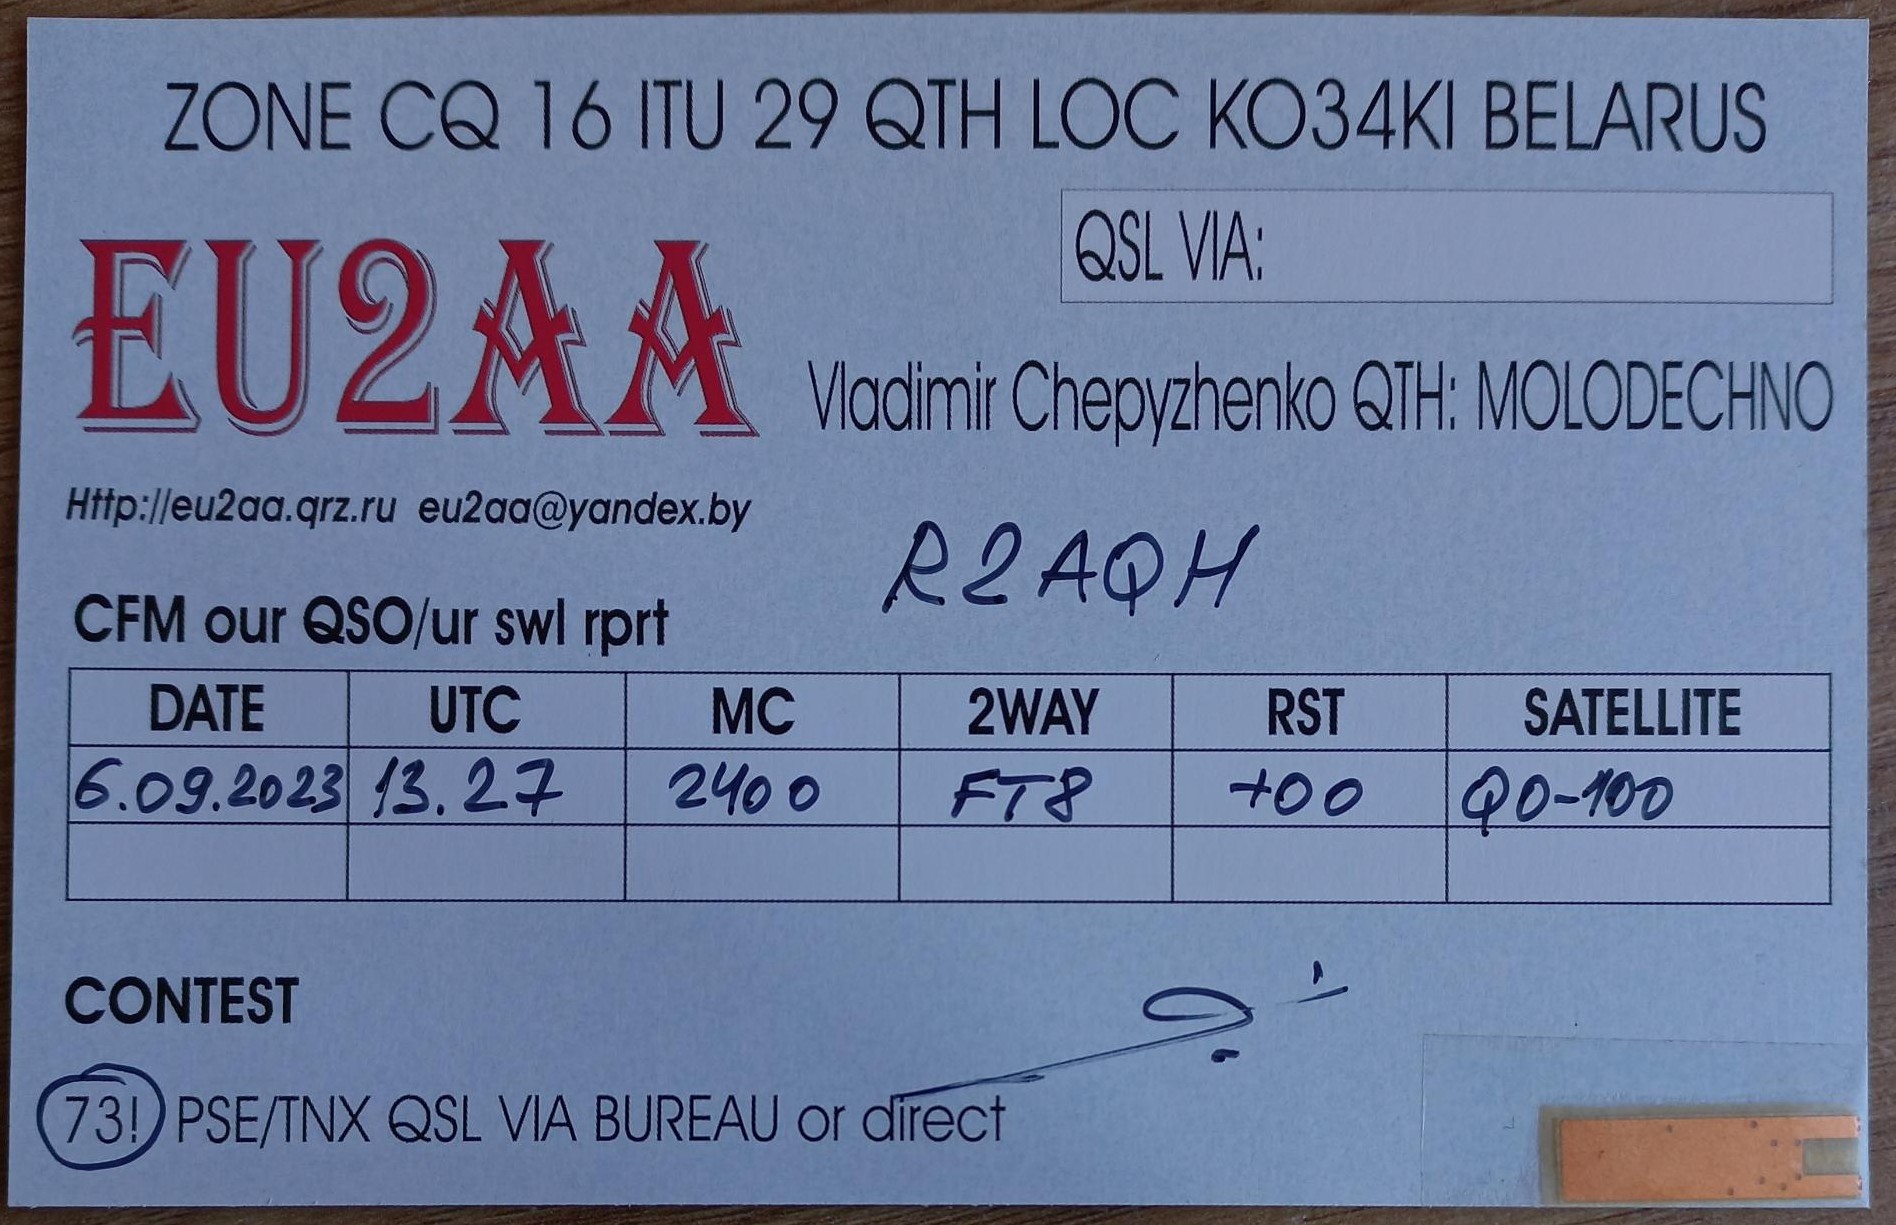 ZONE CQ 16 ITU 29 QTH LOC KO34KI BELARUS
QSL VIA:
EU2AA
Vladimir Chepyzhenko QTH: MOLODECHNO
Http://eu2aa.qrz.ru eu2aa@yandex.by
R2AQH
CFM our QSO/ur swl rprt
DATE UTC MC 2WAY RST SATELLITE
6.09.2023 13.27 2400 FT8 +00 QO-100
CONTEST
73! PSE/TNX QSL VIA BUREAU or direct